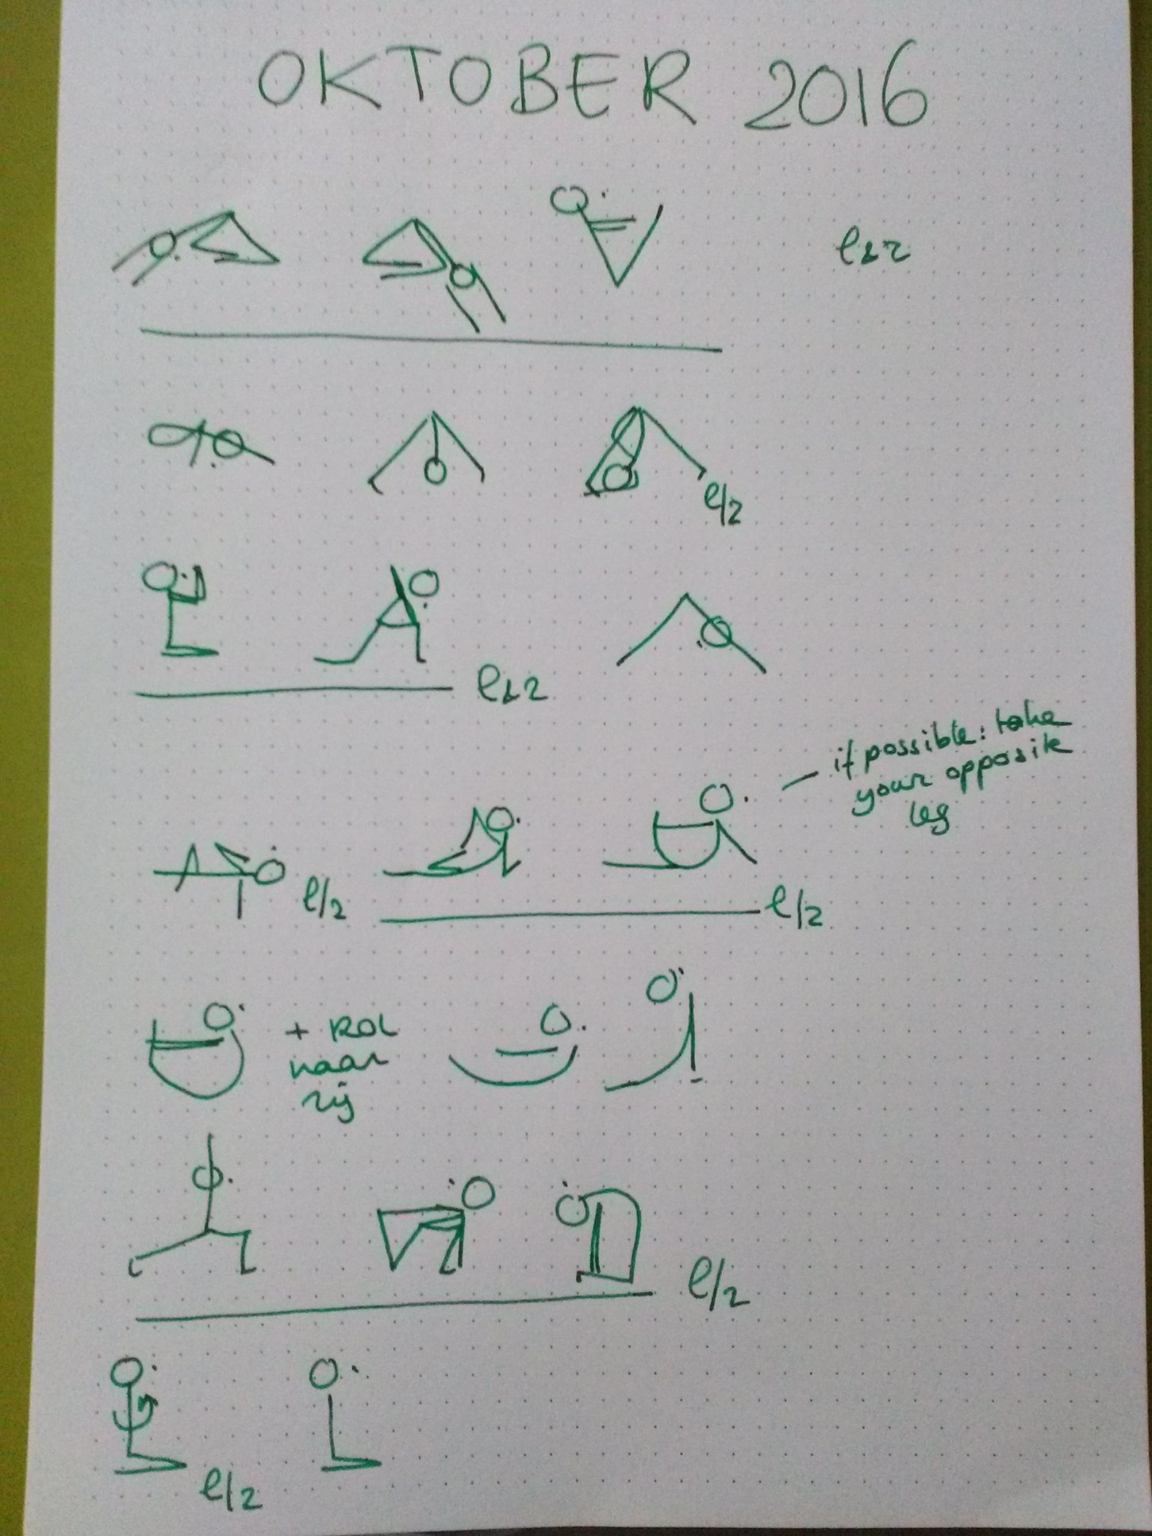 OKTOBER 2016
l&r
l/r
l&r
if possible: take
your opposite
leg
l/r
l/r
+ ROL
naar
zij
l/r
l/r